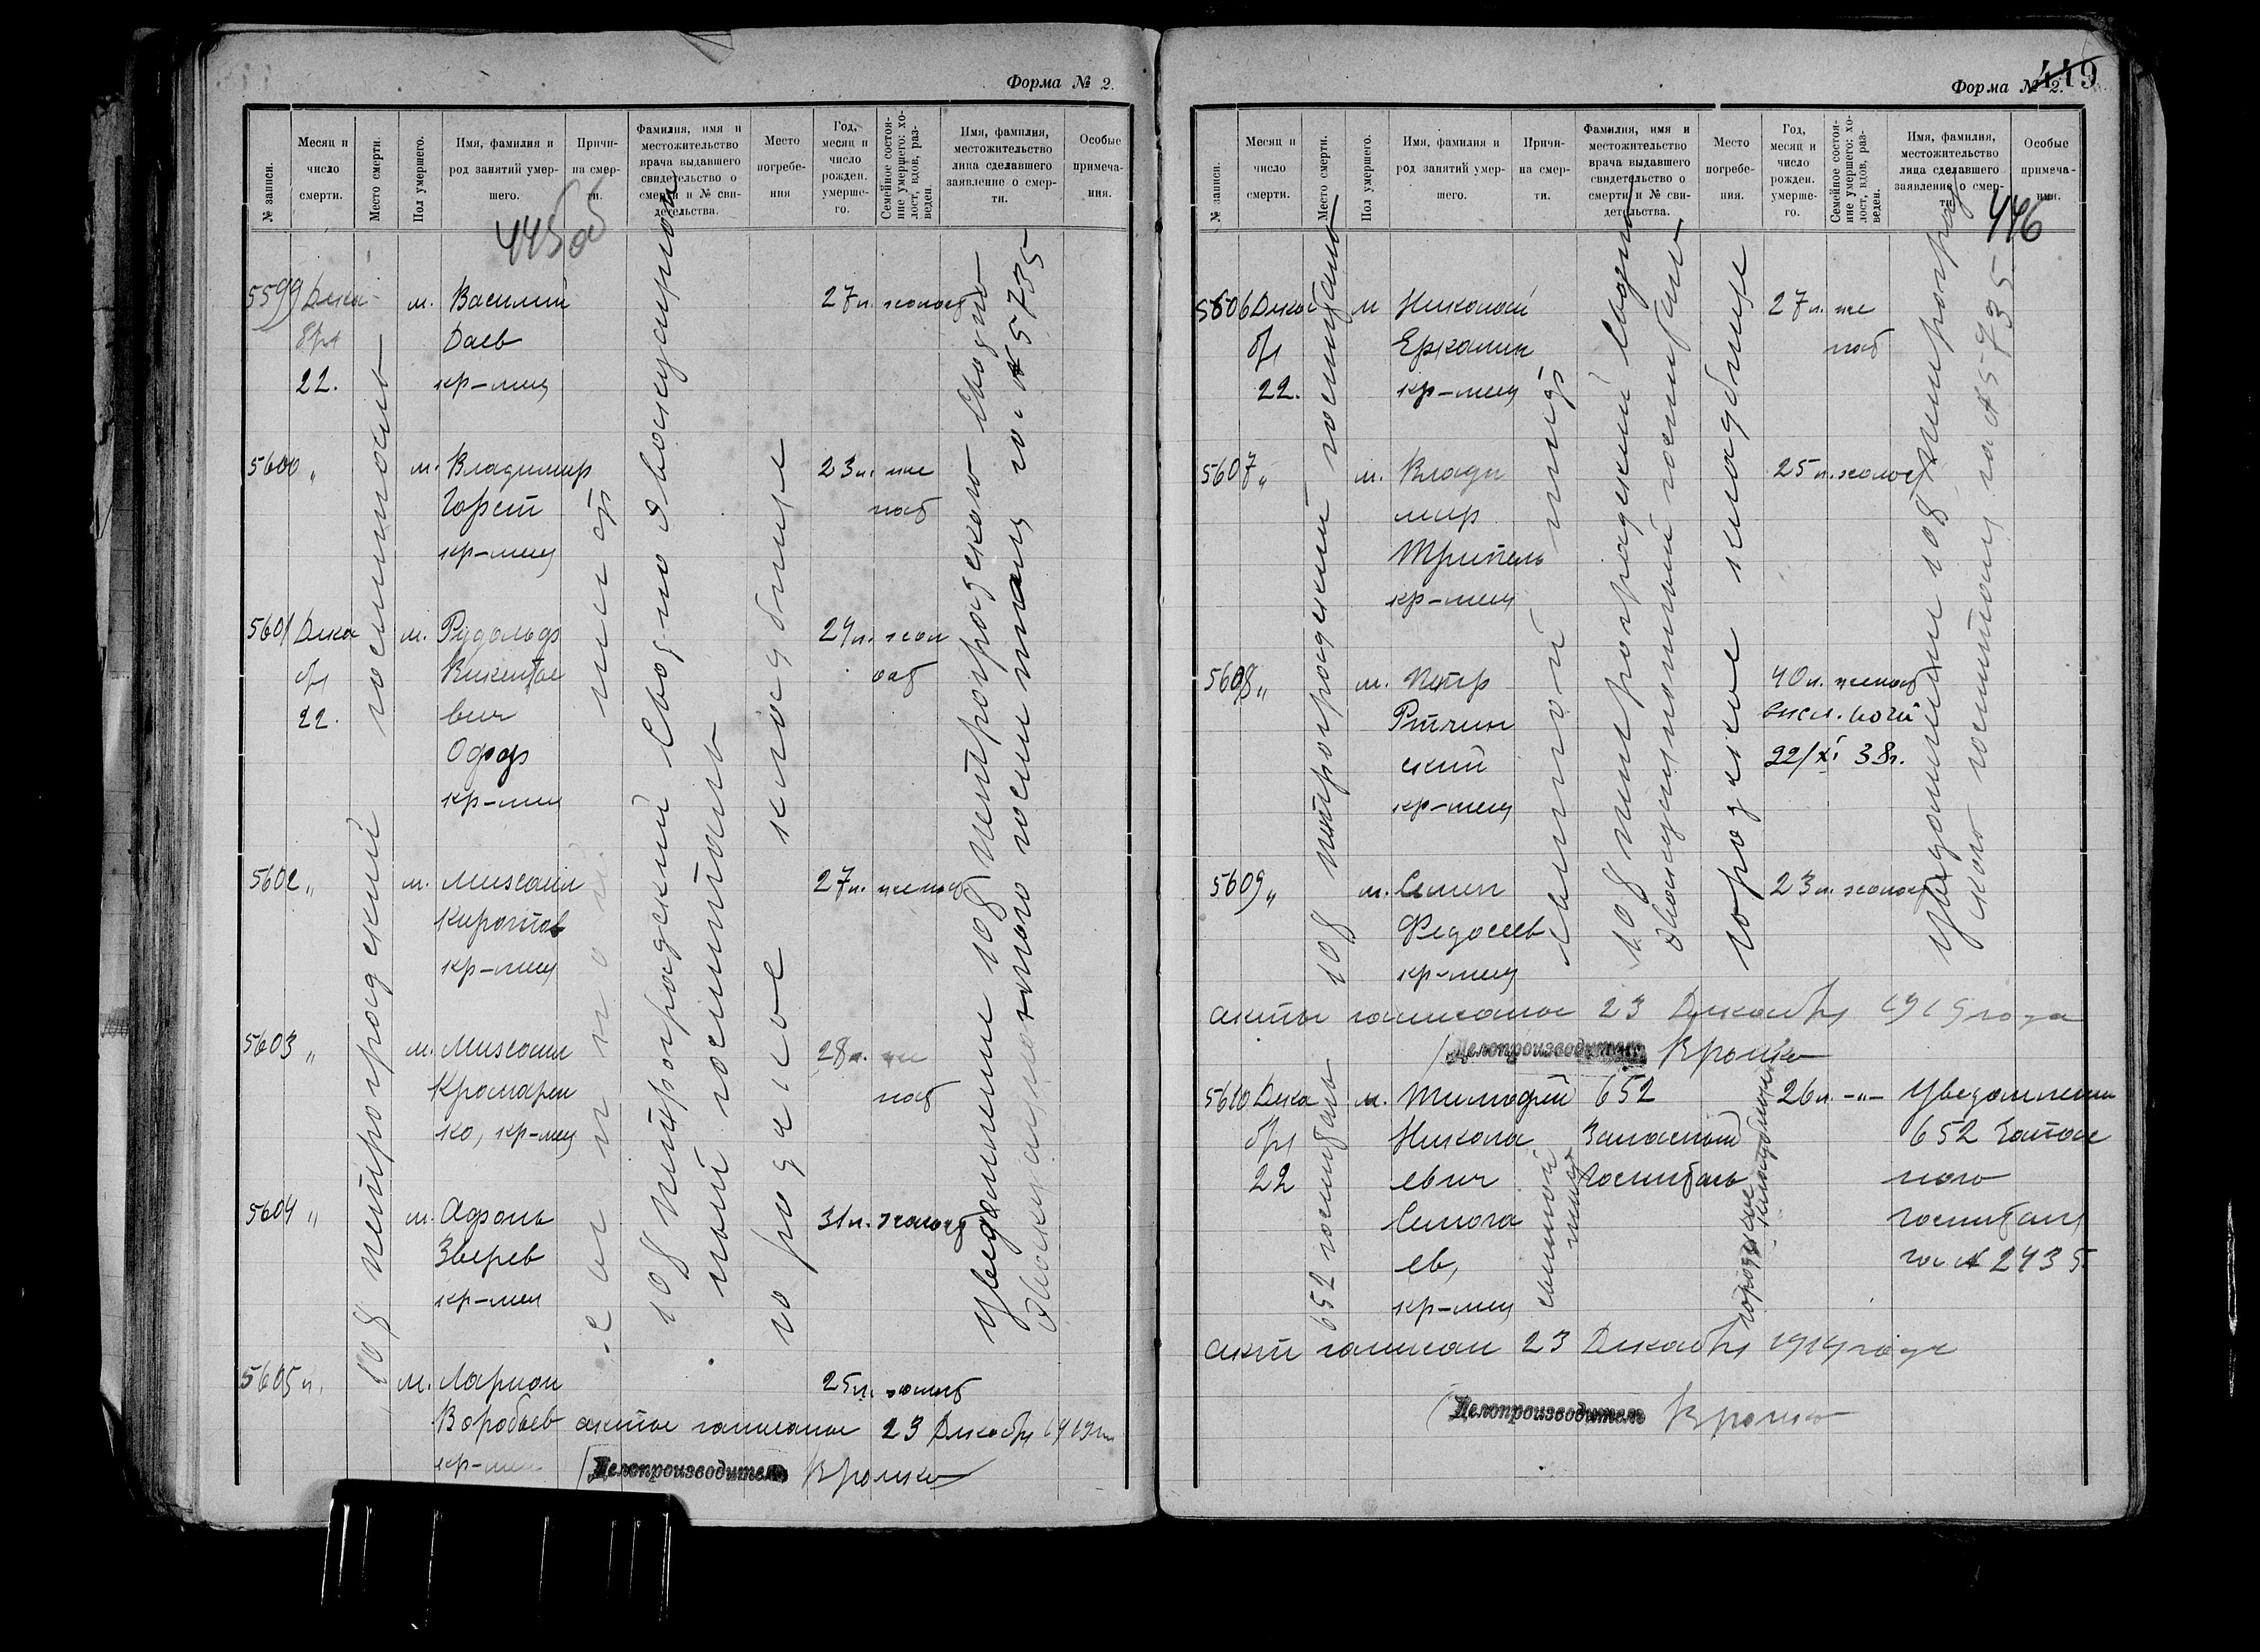 Форма № 2.
№ записи.
Месяц и число смерти.
Место смерти.
Пол умершего.
Имя, фамилия и род занятий умершего.
Причина смерти.
Фамилия, имя и местожительство врача выдавшего свидетельство о смерти и № свидетельства.
Место погребения
Год, месяц и число рожден. умершего.
Семейное состояние умершего: холост, вдов, разведен.
Имя, фамилия, местожительство лица сделавшего заявление о смерти.
Особые примечания.
445об
5599 Дека- м. Василий 27 л. холост
бря Даев
22. кр-нин
5600 " м. Владимир 23 л. же
нат
кр-нин
5601 Дека м. Рудольф 24 л. хол
бря Викентье ост
22. вич
кр-нин
5602 " м. Михаил 27 л. женат
кр-нин
5603 " м. Михаил 28 л. же
нат
ко, кр-нин
5604 " м. 31 л. холост
Зверев
кр-нин
5605 " м. Ларион 25 л. холост
Воробьев акты записаны 23 Декабря 1919 г.
кр-нин Делопроизводитель
108 петроградский госпиталь
сыпной тиф
108 петроградский Сводно эвакуационный госпиталь
городское кладбище
Уведомление 108 петроградского Сводно
эвакуационного госпиталя за № 5735
Форма № 2.
449
446
№ записи.
Месяц и число смерти.
Место смерти.
Пол умершего.
Имя, фамилия и род занятий умершего.
Причина смерти.
Фамилия, имя и местожительство врача выдавшего свидетельство о смерти и № свидетельства.
Место погребения.
Год, месяц и число рожден. умершего.
Семейное состояние умершего: холост, вдов, разведен.
Имя, фамилия, местожительство лица сделавшего заявление о смерти.
Особые примечания.
5606 Декаб м Николай 27 л. же
бря нат
22. кр-нин
5607 " м. Влади 25 л. холост
мир
кр-нин
5608 " м. Петр 40 л. женат
ский 22/XI 38 г.
кр-нин
5609 " м. Семен 23 л. холост
Федосеев
кр-нин
108 петроградский госпиталь
сыпной тиф
108 петроградский Сводно
эвакуационный госпиталь
городское кладбище
Уведомление 108 Петроград
ского госпиталя за № 5735
акты записаны 23 Декабря 1919 года
Делопроизводитель
5610 Дека м. Тимофей 652 26 л. -"- Уведомление
бря Никола Запасный 652 Запас
22 евич Госпиталь ного
госпиталя
ев, за № 2435
кр-нин
652 госпиталь
сыпной тиф
городское кладбище
акт записан 23 Декабря 1919 года
Делопроизводитель